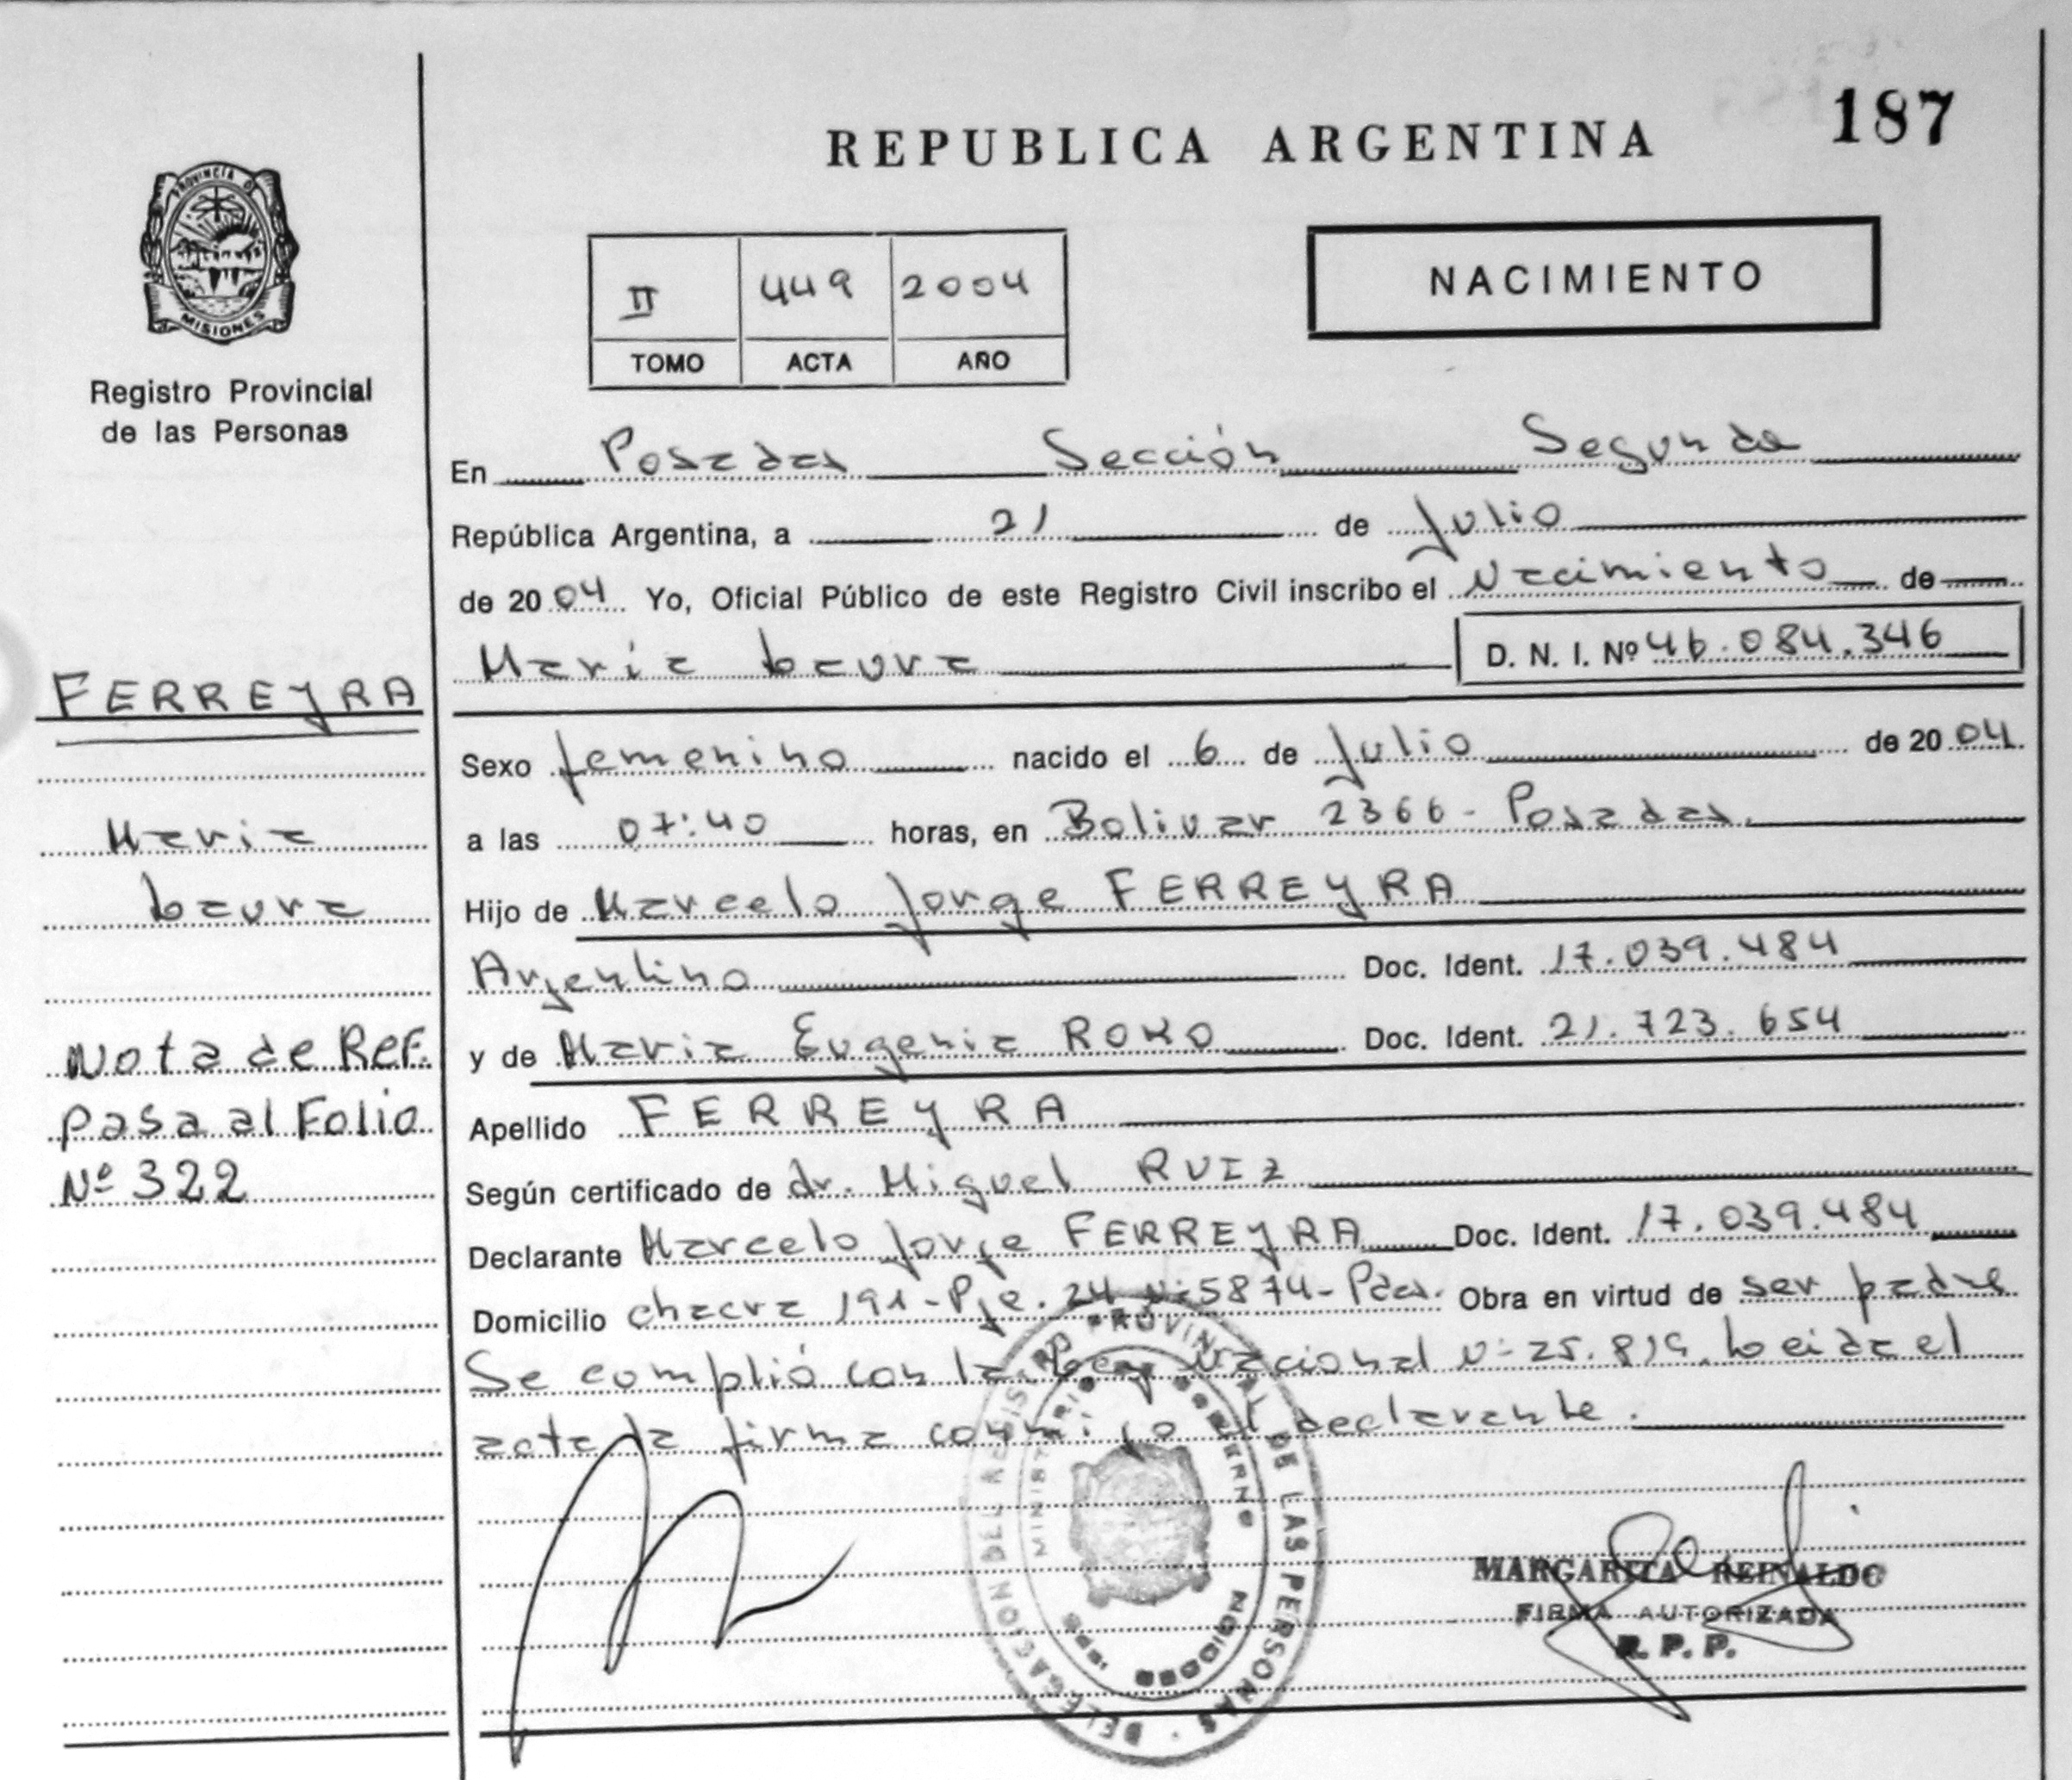 187
REPUBLICA ARGENTINA
PROVINCIA DE
MISIONES
Registro Provincial
de las Personas
II 449 2004
TOMO ACTA AÑO
NACIMIENTO
En Posadas Sección Segunda
República Argentina, a 21 de Julio
de 2004 Yo, Oficial Público de este Registro Civil inscribo el Nacimiento de
María Laura D. N. I. Nº 46.084.346
FERREYRA
Maria
Laura
Nota de Ref.
Pasa al Folio
Nº 322
Sexo femenino nacido el 6 de Julio de 2004
a las 07:40 horas, en Bolivar 2366 - Posadas.
Hijo de Marcelo Jorge FERREYRA
Argentino Doc. Ident. 17.039.484
y de Maria Eugenia ROKO Doc. Ident. 21.723.654
Apellido FERREYRA
Según certificado de dr. Miguel RUIZ
Declarante Marcelo Jorge FERREYRA Doc. Ident. 17.039.484
Domicilio chacra 191 - Pje. 24 Nº 5874 - Pdas. Obra en virtud de ser padre
Se complió con la Ley Nacional Nº 25.819. Leida el
acta la firma conmigo el declarante.
DELEGACION DEL REGISTRO PROVINCIAL DE LAS PERSONAS
MINISTERIO GOBIERNO
MISIONES
MARGARITA REINALDO
FIRMA AUTORIZADA
R. P. P.